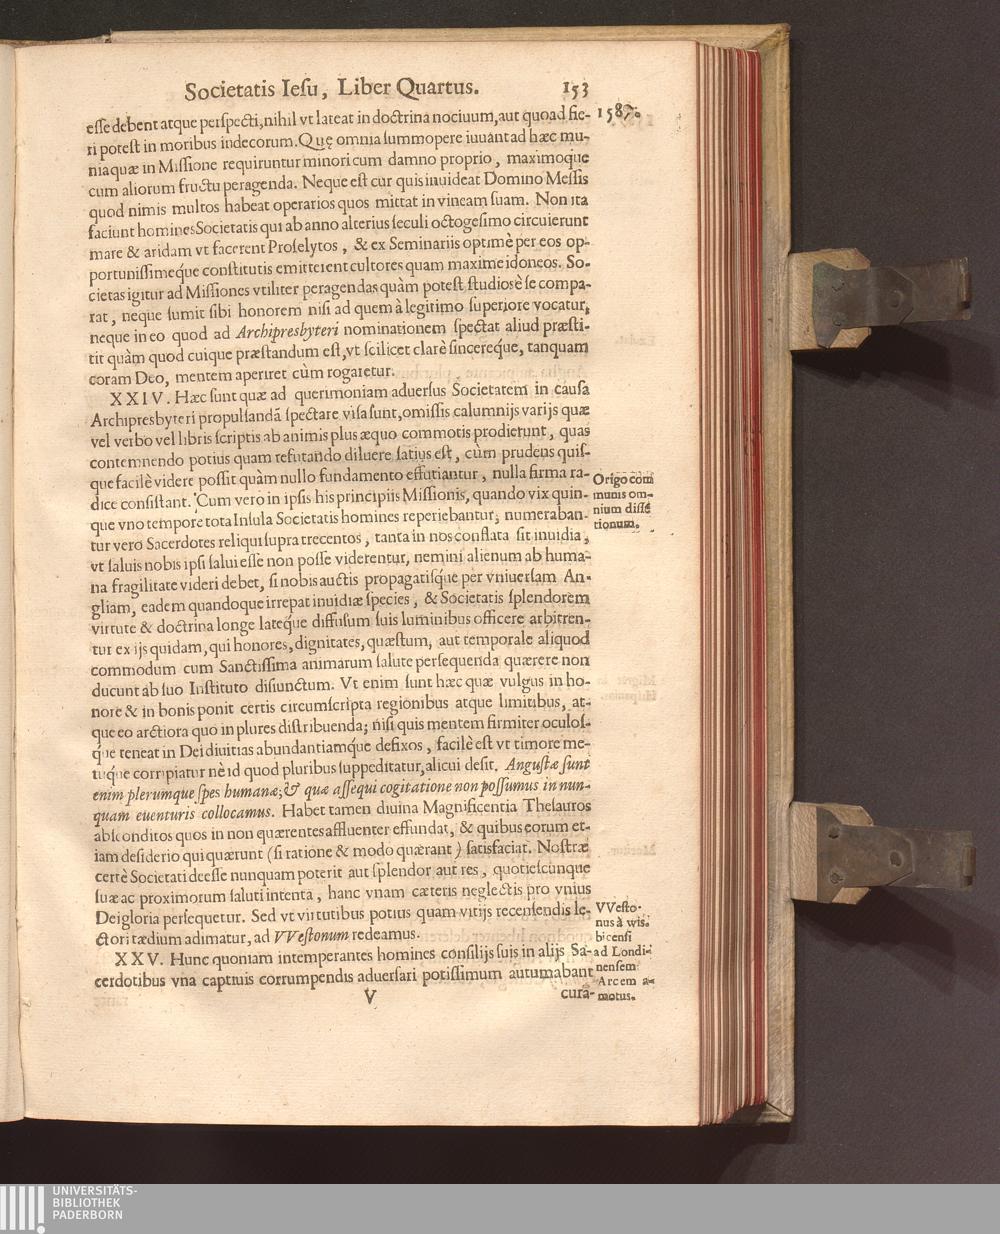 Societatis Iesu, Liber Quartus. 153
1587.
esse debent atque perspecti, nihil vt lateat in doctrina nociuum, aut quoad fie-
ri potest in moribus indecorum. Quę omnia summopere iuuant ad hæc mu-
nia quæ in Missione requiruntur minori cum damno proprio, maximoque
cum aliorum fructu peragenda. Neque est cur quis inuideat Domino Messis
quod nimis multos habeat operarios quos mittat in vineam suam. Non ita
faciunt homines Societatis qui ab anno alterius seculi octogesimo circuierunt
mare & aridam vt facerent Proselytos, & ex Seminariis optimè per eos op-
portunissimeq́ue constitutis emitterent cultores quam maxime idoneos. So-
cietas igitur ad Missiones vtiliter peragendas quàm potest studiosè se compa-
rat, neque sumit sibi honorem nisi ad quem à legitimo superiore vocatur,
neque in eo quod ad Archipresbyteri nominationem spectat aliud præsti-
tit quàm quod cuique præstandum est, vt scilicet clarè sincereq́ue, tanquam
coram Deo, mentem aperiret cùm rogaretur.
XXIV. Hæc sunt quæ ad querimoniam aduersus Societatem in causa
Archipresbyteri propulsandā spectare visa sunt, omissis calumnijs varijs quæ
vel verbo vel libris scriptis ab animis plus æquo commotis prodierunt, quas
contemnendo potius quam refutando diluere satius est, cùm prudens quis-
que facilè videre possit quàm nullo fundamento effutiantur, nulla firma ra-
dice consistant. Cum vero in ipsis his principiis Missionis, quando vix quin-
que vno tempore tota Insula Societatis homines reperiebantur, numeraban-
tur vero Sacerdotes reliqui supra trecentos, tanta in nos conflata sit inuidia,
vt saluis nobis ipsi salui esse non posse viderentur, nemini alienum ab huma-
na fragilitate videri debet, si nobis auctis propagatisq́ue per vniuersam An-
gliam, eadem quandoque irrepat inuidiæ species, & Societatis splendorem
virtute & doctrina longe lateq́ue diffusum suis luminibus officere arbitren-
tur ex ijs quidam, qui honores, dignitates, quæstum, aut temporale aliquod
commodum cum Sanctissima animarum salute persequenda quærere non
ducunt ab suo Instituto disiunctum. Vt enim sunt hæc quæ vulgus in ho-
nore & in bonis ponit certis circumscripta regionibus atque limitibus, at-
que eo arctiora quo in plures distribuenda; nisi quis mentem firmiter oculos-
q́ue teneat in Dei diuitias abundantiamq́ue defixos, facilè est vt timore me-
tuque corripiatur nè id quod pluribus suppeditatur, alicui desit. Angustæ sunt
enim plerumque spes humanæ; & quæ assequi cogitatione non possumus in nun-
quam euenturis collocamus. Habet tamen diuina Magnificentia Thesauros
absconditos quos in non quærentes affluenter effundat, & quibus eorum et-
iam desiderio qui quærunt (si ratione & modo quærant) satisfaciat. Nostræ
certè Societati deesse nunquam poterit aut splendor aut res, quotiescunque
suæ ac proximorum saluti intenta, hanc vnam cæteris neglectis pro vnius
Dei gloria persequetur. Sed vt virtutibus potius quam vitijs recensendis le-
ctori tædium adimatur, ad VVestonum redeamus.
XXV. Hunc quoniam intemperantes homines consilijs suis in alijs Sa-
cerdotibus vna captiuis corrumpendis aduersari potissimum autumabant
V cura-
Origo com
munis om-
nium dissē
tionum.
VVesto-
nus à wis-
bicensi
ad Londi-
nensem
Arcem a-
motus.
UNIVERSITÄTS-
BIBLIOTHEK
PADERBORN